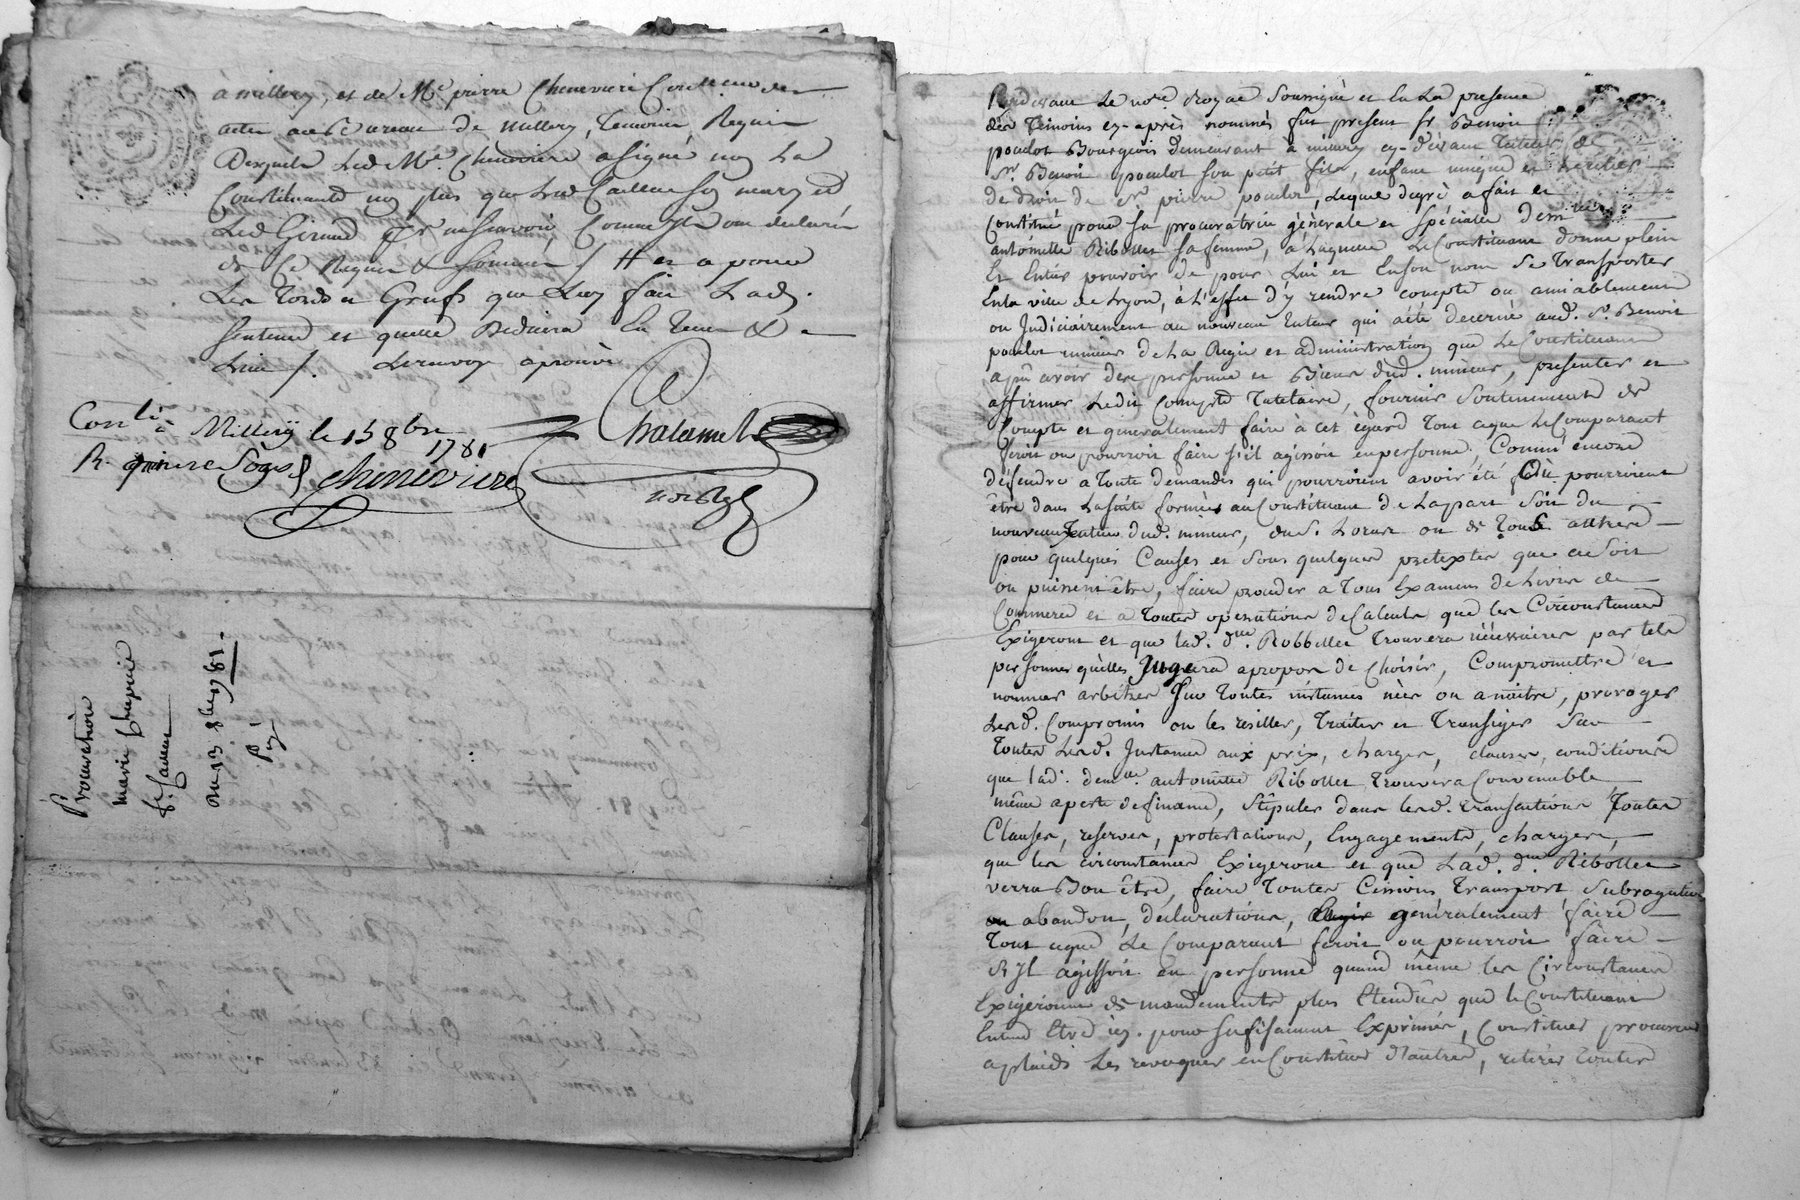 à millery, et de Me pierre Cheneviere Controlleur des
actes au Bureau de millery, temoins Requis
Desquels Led Me. Cheneviere a signé non La
Constituante non plus que Led Caillau son mary et
Led Giraud pr ne scavoir Comme ils ont declaré
de Ce Requis & sommés /. # et a poursuivre
Les fords et Grefs que Luy fait Lad.
Sentence et quelle Deduira En tems & 
Lieu /. Le renvoy aprouvé
Chalamel
Contlé à Millery le 15 8bre 1781
R. quinze Sogs Cheneviere
notRe
Procuration
marie
fe. Caillau
Du 13 8bre 1781.
Pardevant Le nore Royal Soussigné et En La presence
des Temoins cy-après nommés fut present sr Benoit
poculot Bourgeois demeurant à millery cy-devant Tuteur de
sr. Benoit poculot son petit fils, enfant unique et heritier
de droit de sr. pierre poculot, Lequel degré a fait et
Constitué pour sa procuratrice générale et spéciale demlle
antoinette Ribollet sa femme, à Laquelle Le Constituant donne plein
Et Entier pouvoir de pour Lui et En son nom Se Transporter
En la ville de Lyon, à L'effet d'y rendre compte ou amiablement
ou Judiciairement au nouveau tuteur qui a été decerné aud. sr. Benoit
poculot mineur de La Regie et administration que Le Constituant
a pû avoir des personne et Biens dud. mineur, presenter et
affirmer Ledit Compte Tutelaire, fournir Soutenement de
Compte et generalement faire à cet égard Tout ce que Le Comparant
feroit ou pourroit faire s'il agissoit en personne, Comme encore
défendre a Toute demandes qui pourroient avoir été où pourroient
être dans La suite formées au Constituant de La part Soit du
nouveau Tuteur dud. mineur, du S. ou de tous autres
pour quelques Causes et sous quelques pretextes que ce soit
ou puissent être, faire proceder a tous Examens de Livres de
Commerce et a Toutes operations de Calculs que les Circonstances
Exigeront et que lad. dlle Robbollet Trouvera nécessaires par tels
personnes qu'elles Jugera apropos de Choisir, Compromettre et
nommer arbitres sur Toutes instances nées ou a naitre, proroger
Lesd. Compromis ou les resilier, Traiter et Transiger Sur
Toutes Lesd. Instances aux prix, charges, clauses, conditions
que Lad. demlle. antoinette Ribollet Trouvera Convenable
même a perte de finance, Stipuler dans lesd. Transactions Toutes
Clauses, reserves, protestations, Engagements, charges,
que les circonstances Exigeront et que Lad. dlle Ribollet
verra Bon être, faire Toutes Cessions Transport Subrogation
ou abandon, declarations, generalement faire
Tout ce que Le Comparant feroit ou pourroit faire
s'Il agissoit en personne quand même les Circonstances
Exigeronne des mandements plus Etendus que le Constituant
Entend Etre icy pour sufisament Exprimés, Constituer procureur
a plaids Les revoquer en Constituer d'autres, retirer toutes